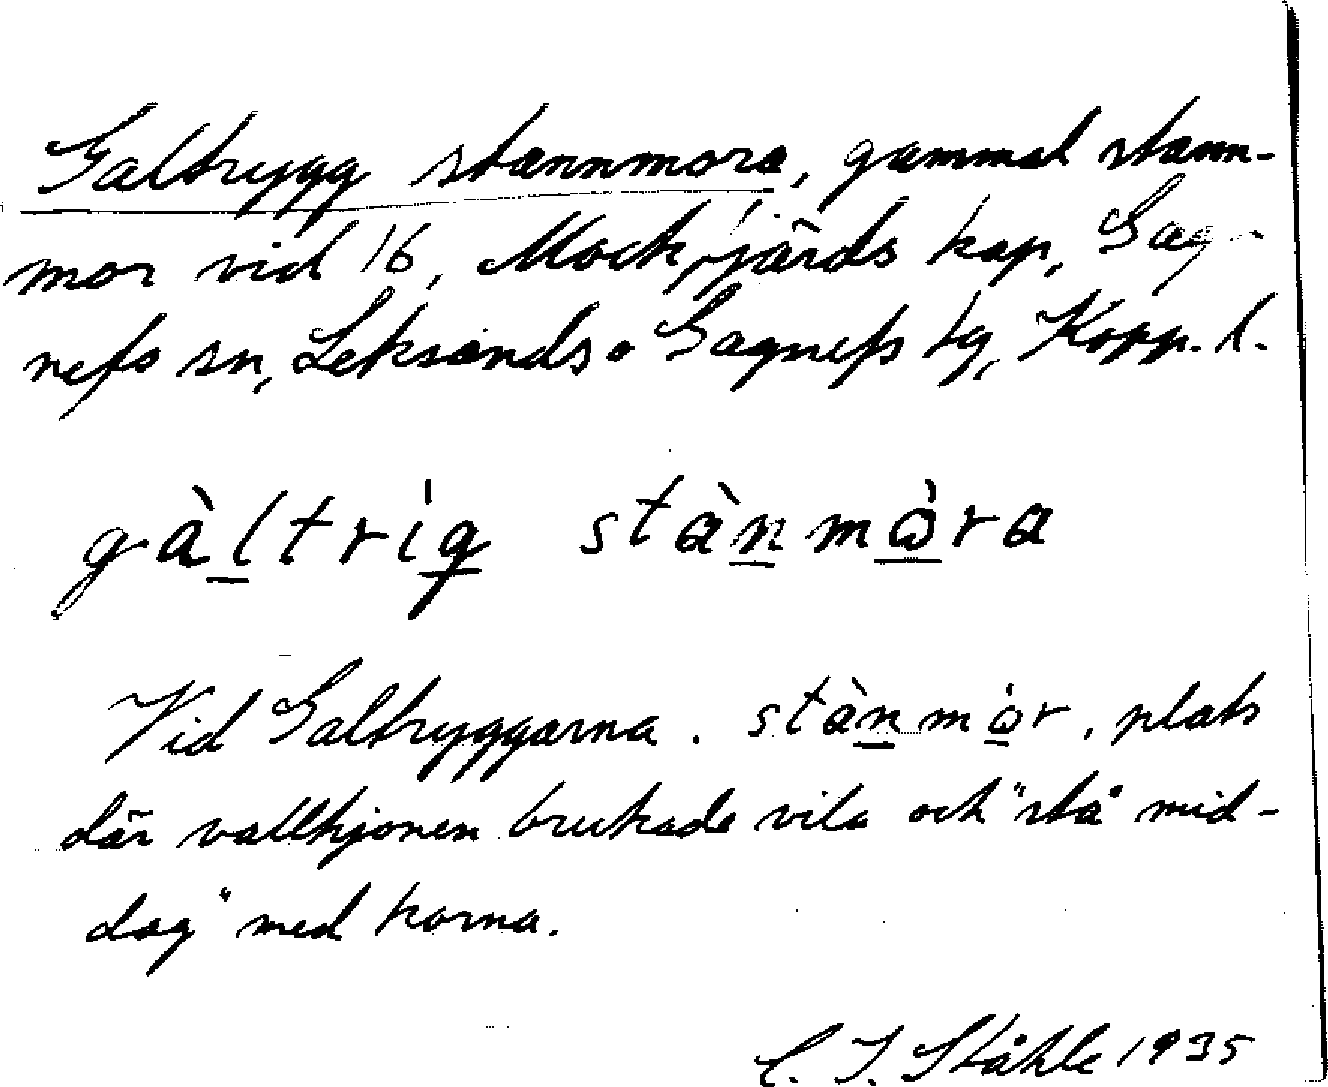 Galtrygg stannmora, gammal stann-
mor vid 16, Mockfjärds kap, Gag-
nefs sn, Leksands o Gagnefs tg, Kopp. l.
gàltrig stànmòra
Vid Galtryggarna. stànmòr, plats
där vallhjonen brukade vila och "stå mid-
dag" med korna.
C. I. Ståhle 1935